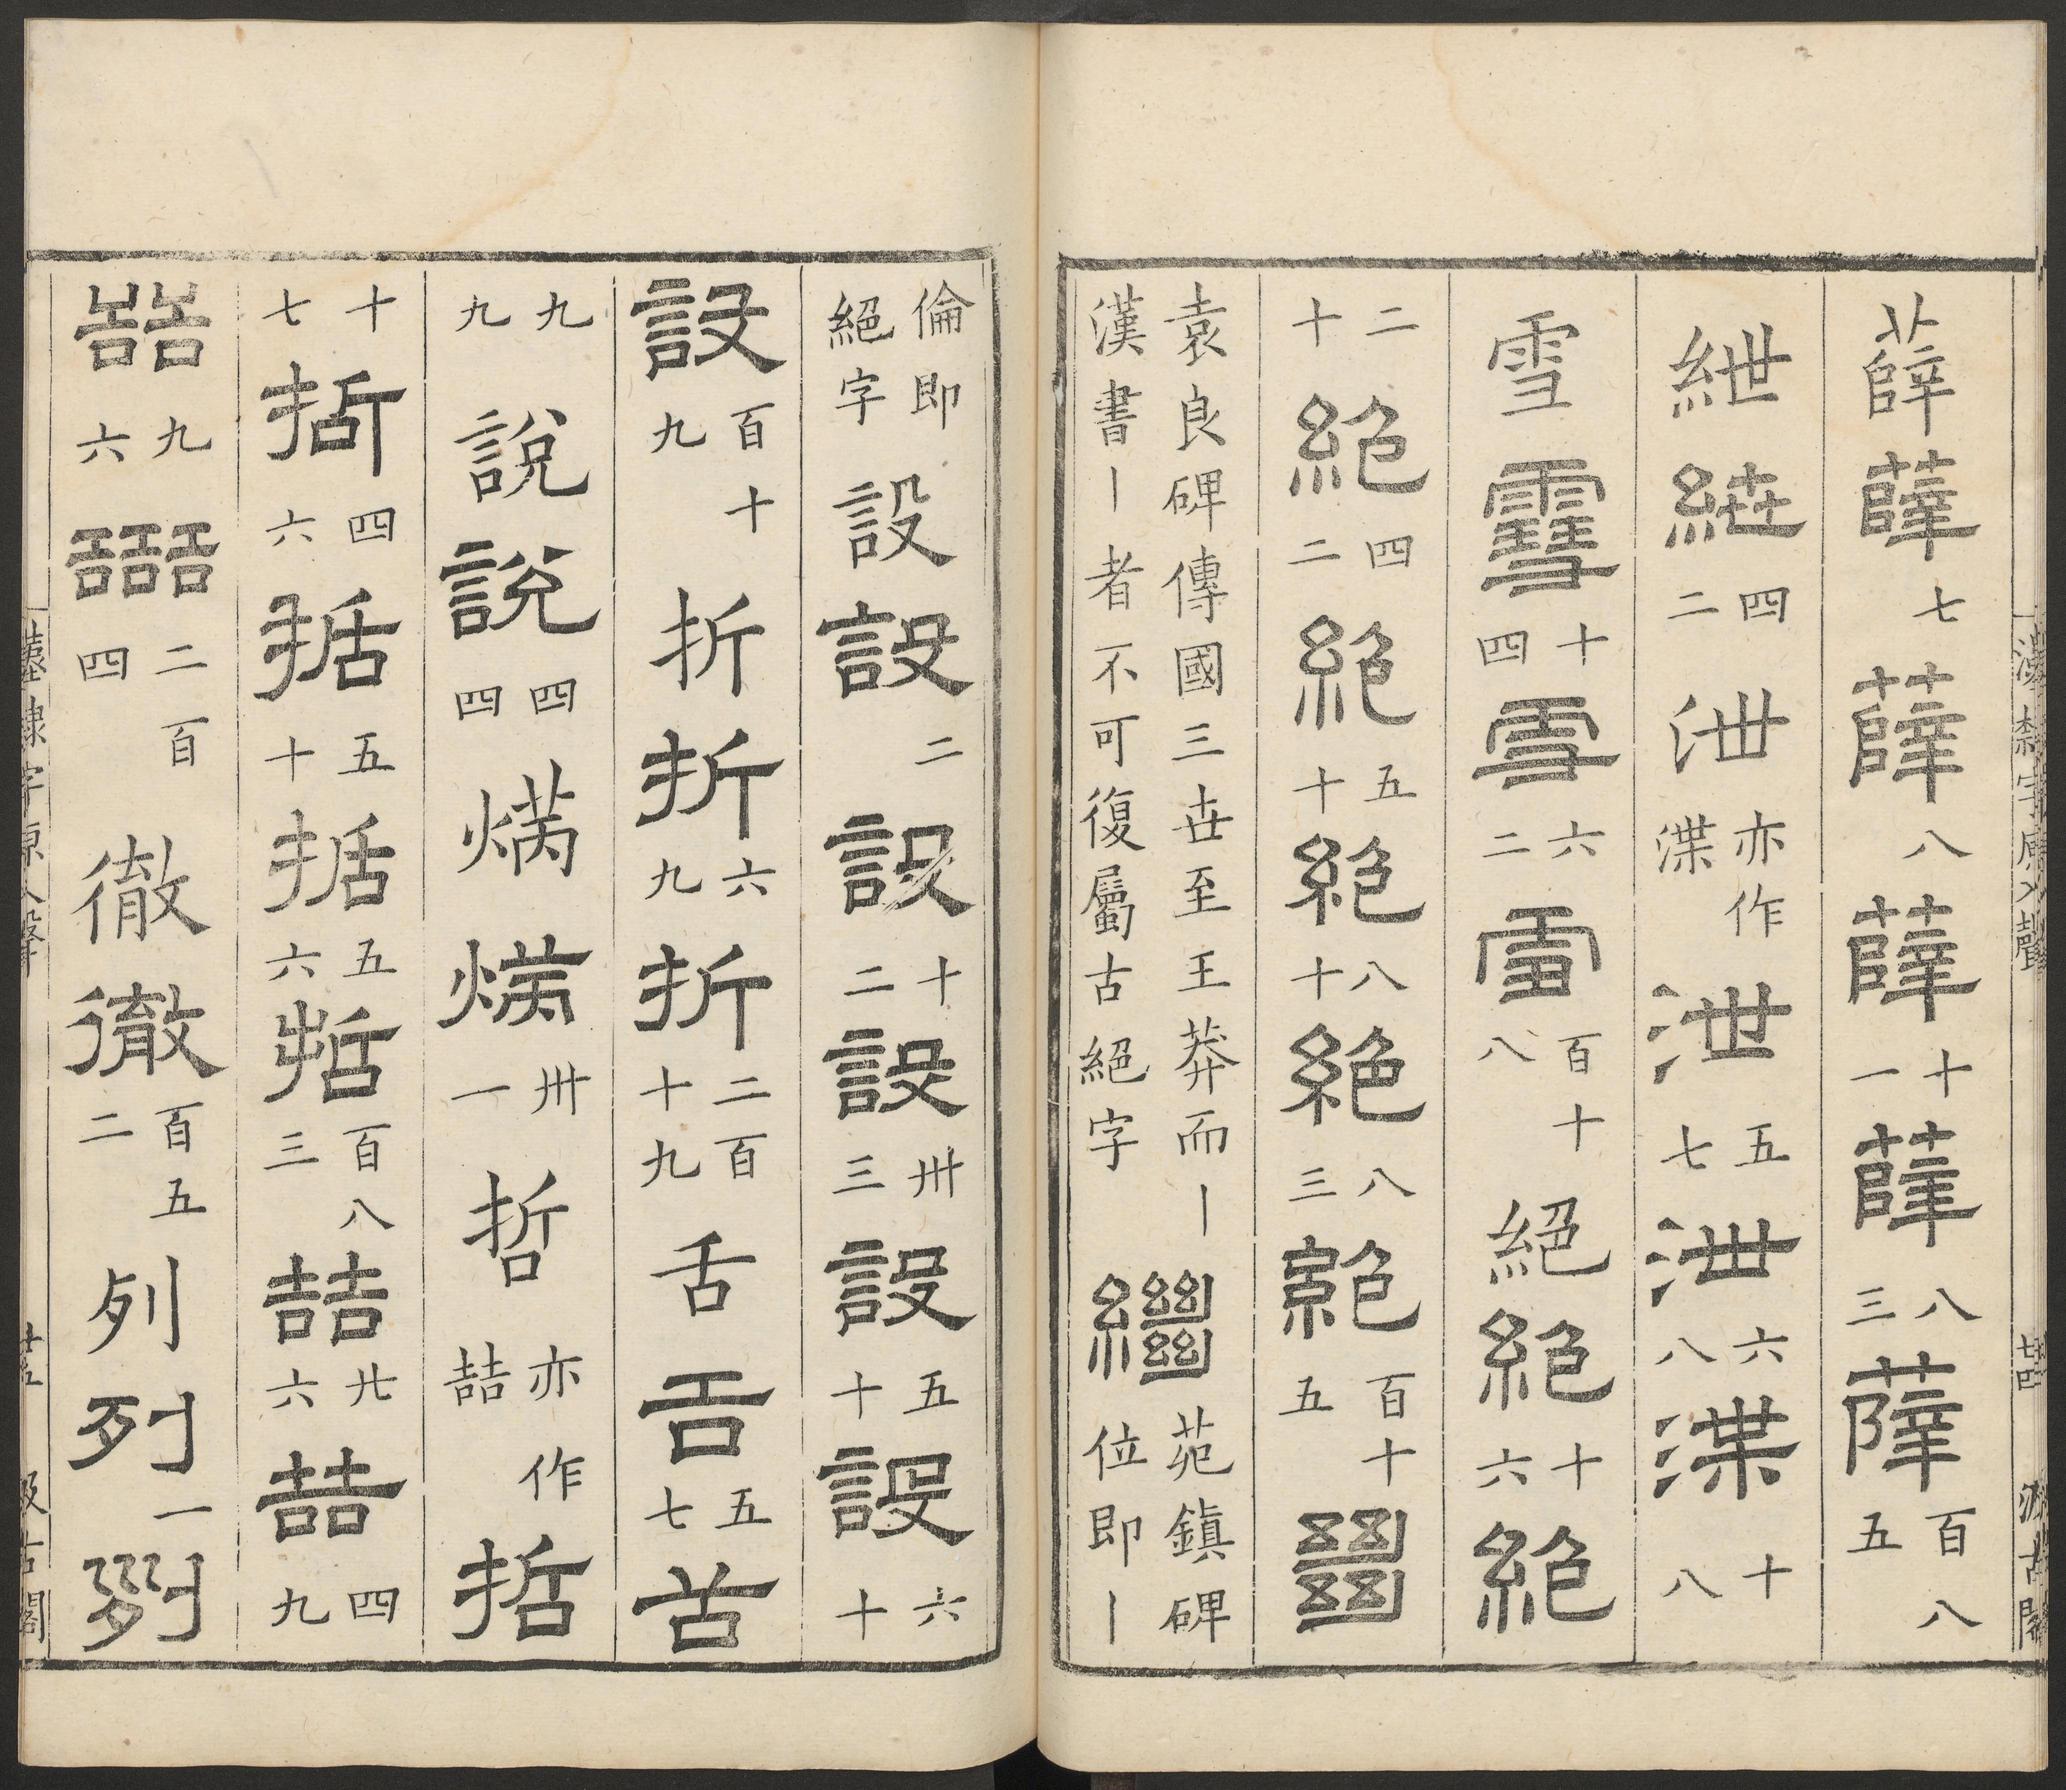 漢隸字原入聲 廿四 汲古閣
薛薛七薛八薛十一薛八三薛百八五
紲紲四二泄亦作渫泄五七泄六八渫十八
雪䨮十四雪六二雪百十八絕絕十六絕
二十絕四二絕五十絕八十絕八三絕百十五𢇍
袁良碑傳國三世至王莽而丨漢書丨者不可復屬古絕字繼苑鎮碑位即丨
倫即絕字設設二設十二設卅三設五十設六十
設百十九折折六九折二百十九舌舌五七舌
九九說說四四卅一哲亦作喆哲
十七哲四六哲五十哲五六哲百八三喆廿六喆四九
嚞九六嚞二百四徹徹百五二列列一列
漢隸字原入聲 廿五 汲古閣